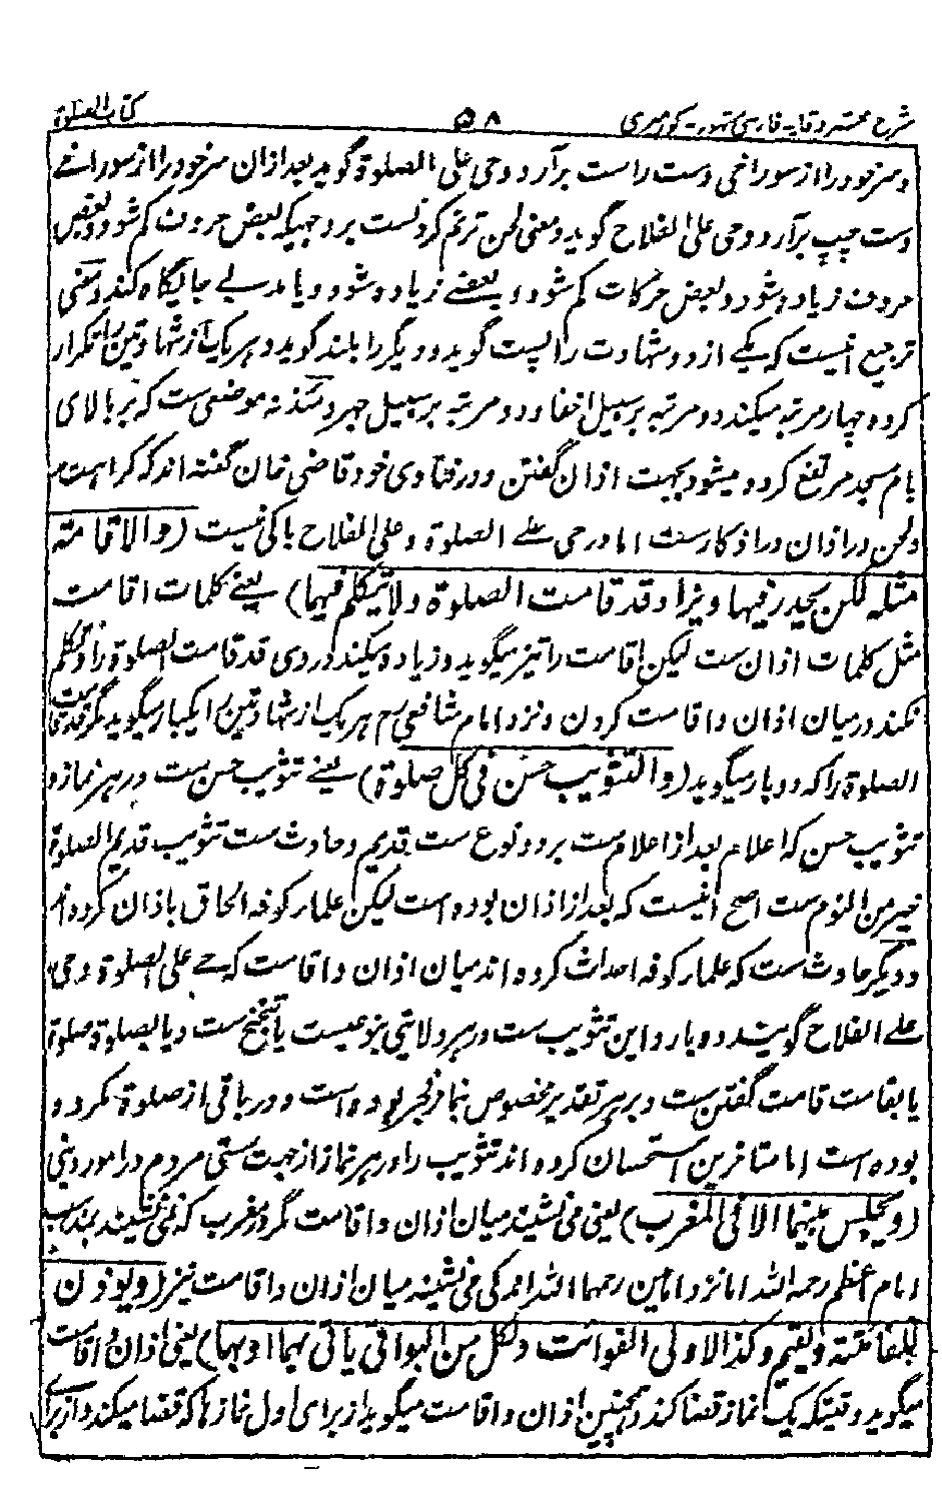 کتاب الصلوة ۵۸ شرح مختصر وقایه فارسی مشهور-کور میری
و سر خود را از سوراخی دست راست برآرد و حی علی الصلوة گوید بعد ازان سر خود را از سوراخے
دست چپ برآرد و حی علی الفلاح گوید و معنی لحن ترنم کردنست بر وجهیکه بعض حروف کم شود و بعض
حروف زیاده شود و بعض حرکات کم شود و بعضے زیاده شود و یا مد بے جایگاه کند و معنی
ترجیع اینست که یکے از دو شهادت را پست گوید و دیگر را بلند گوید و هر یک از شهادتین را تکرار
کرده چهار مرتبه میکند دو مرتبه بر سبیل اخفا و دو مرتبه بر سبیل جهر و مئذنه موضعی ست که بر بالای
بام مسجد مرتفع کرده میشود بجهت اذان گفتن و در فتاوی خود قاضی خان گفته اند که کراهت
ولحن در اذان در اذکارست اما در حی علے الصلوة و علی الفلاح باکی نیست (والاقامة
مثله لکن یحدر فیها ویزاد قد قامت الصلوة ولا یتکلم فیهما) یعنے کلمات اقامت
مثل کلمات اذان ست لیکن اقامت را تیز میگوید و زیاده میکند در وی قد قامت الصلوة را و تکلم
نکند در میان اذان و اقامت کردن و نزد امام شافعی رح هر یک از شهادتین را یکبار میگوید مگر قد قامت
الصلوة را که دو بار میگوید (والتثویب حسن فی کل صلوة) یعنے تثویب حسن ست در هر نماز و
تثویب حسن که اعلام بعد از اعلام ست بر دو نوع ست قدیم و حادث ست تثویب قدیم الصلوة
خیر من النوم ست اصح اینست که بعد از اذان بوده است لیکن علمار کوفه الحاق باذان کرده اند
و دیگر حادث ست که علمار کوفه احداث کرده اند میان اذان و اقامت که حے علی الصلوة و حی
علے الفلاح گویند دو بار و این تثویب ست در هر ولایتی بنوعیست یا تنحنح ست و یا بصلوة صلوة
یا بقامت قامت گفتن ست و بر هر تقدیر مخصوص بنماز فجر بوده است و در باقی از صلوة مکروه
بوده است اما متاخرین استحسان کرده اند تثویب را در هر نماز از جهت سستی مردم در امور دینی
(ویجلس بینهما الا فی المغرب) یعنی می نشیند میان اذان و اقامت مگر در مغرب که نمی نشیند بمذهب
امام اعظم رحمه الله اما نزد امامین رحمهما الله اندکی می نشیند میان اذان و اقامت نیز (ویوذن
للفائتة ویقیم وکذا لاولی الفوائت ولکل من البواقی یاتی بهما او بها) یعنی اذان و اقامت
میگوید وقتیکه یک نماز قضا کند و همچنین اذان و اقامت میگوید از برای اول نمازها که قضا میکند و از برای